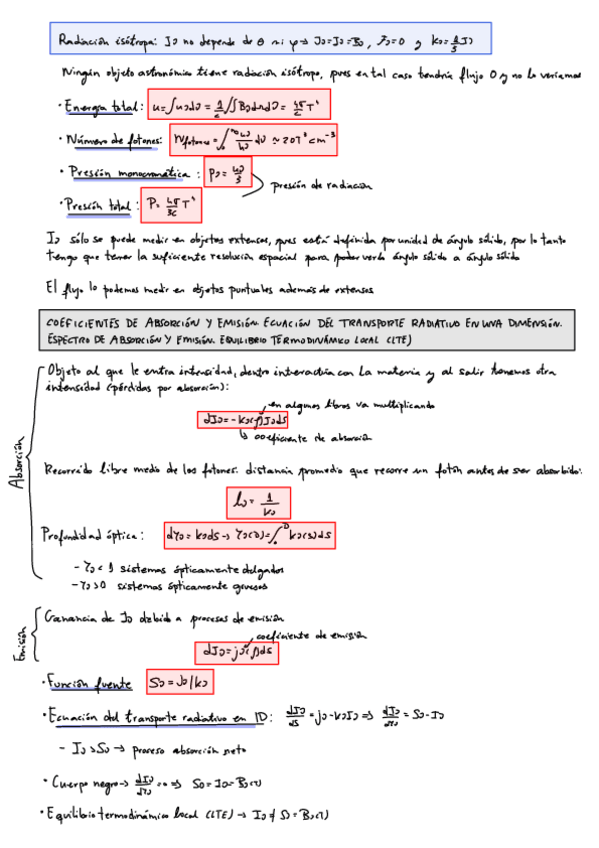 Radiación isótropa: Iν no depende de θ ni φ → Jν=Iν=Bν, Fν=0 y Kν=1/3 Iν
Ningún objeto astronómico tiene radiación isótropa, pues en tal caso tendría flujo 0 y no lo veríamos
· Energía total: u=∫uνdν = 1/c ∫∫BνdΩdν = 4σ/c T⁴
· Número de fotones: nfotones=∫₀^∞ uν/hν dν ≃ 20T³ cm⁻³
· Presión monocromática: pν= uν/3
presión de radiación
· Presión total: P= 4σ/3c T⁴
Iν sólo se puede medir en objetos extensos, pues está definida por unidad de ángulo sólido, por lo tanto
tengo que tener la suficiente resolución espacial para poder verlo ángulo sólido a ángulo sólido
El flujo lo podemos medir en objetos puntuales además de extensos
COEFICIENTES DE ABSORCIÓN Y EMISIÓN. ECUACIÓN DEL TRANSPORTE RADIATIVO EN UNA DIMENSIÓN.
ESPECTRO DE ABSORCIÓN Y EMISIÓN. EQUILIBRIO TERMODINÁMICO LOCAL (LTE)
Absorción
Objeto al que le entra intensidad, dentro interactúa con la materia y al salir tenemos otra
intensidad (pérdidas por absorción):
en algunos libros va multiplicando
dIν=-kν(ρ)Iνds
↳ coeficiente de absorción
Recorrido libre medio de los fotones: distancia promedio que recorre un fotón antes de ser absorbido:
lν= 1/kν
Profundidad óptica: dτν= kνds → τν(D)=∫₀^D kν(s)ds
- τν<1 sistemas ópticamente delgados
- τν>0 sistemas ópticamente gruesos
Emisión
Ganancia de Iν debido a procesos de emisión
coeficiente de emisión
dIν=jν(ρ)ds
· Función fuente Sν=jν/kν
· Ecuación del transporte radiativo en 1D: dIν/ds = jν-kνIν ⇒ dIν/dτν = Sν-Iν
- Iν>Sν → proceso absorción neto
· Cuerpo negro → dIν/dτν =0 ⇒ Sν=Iν=Bν(T)
· Equilibrio termodinámico local (LTE) → Iν≠Sν=Bν(T)